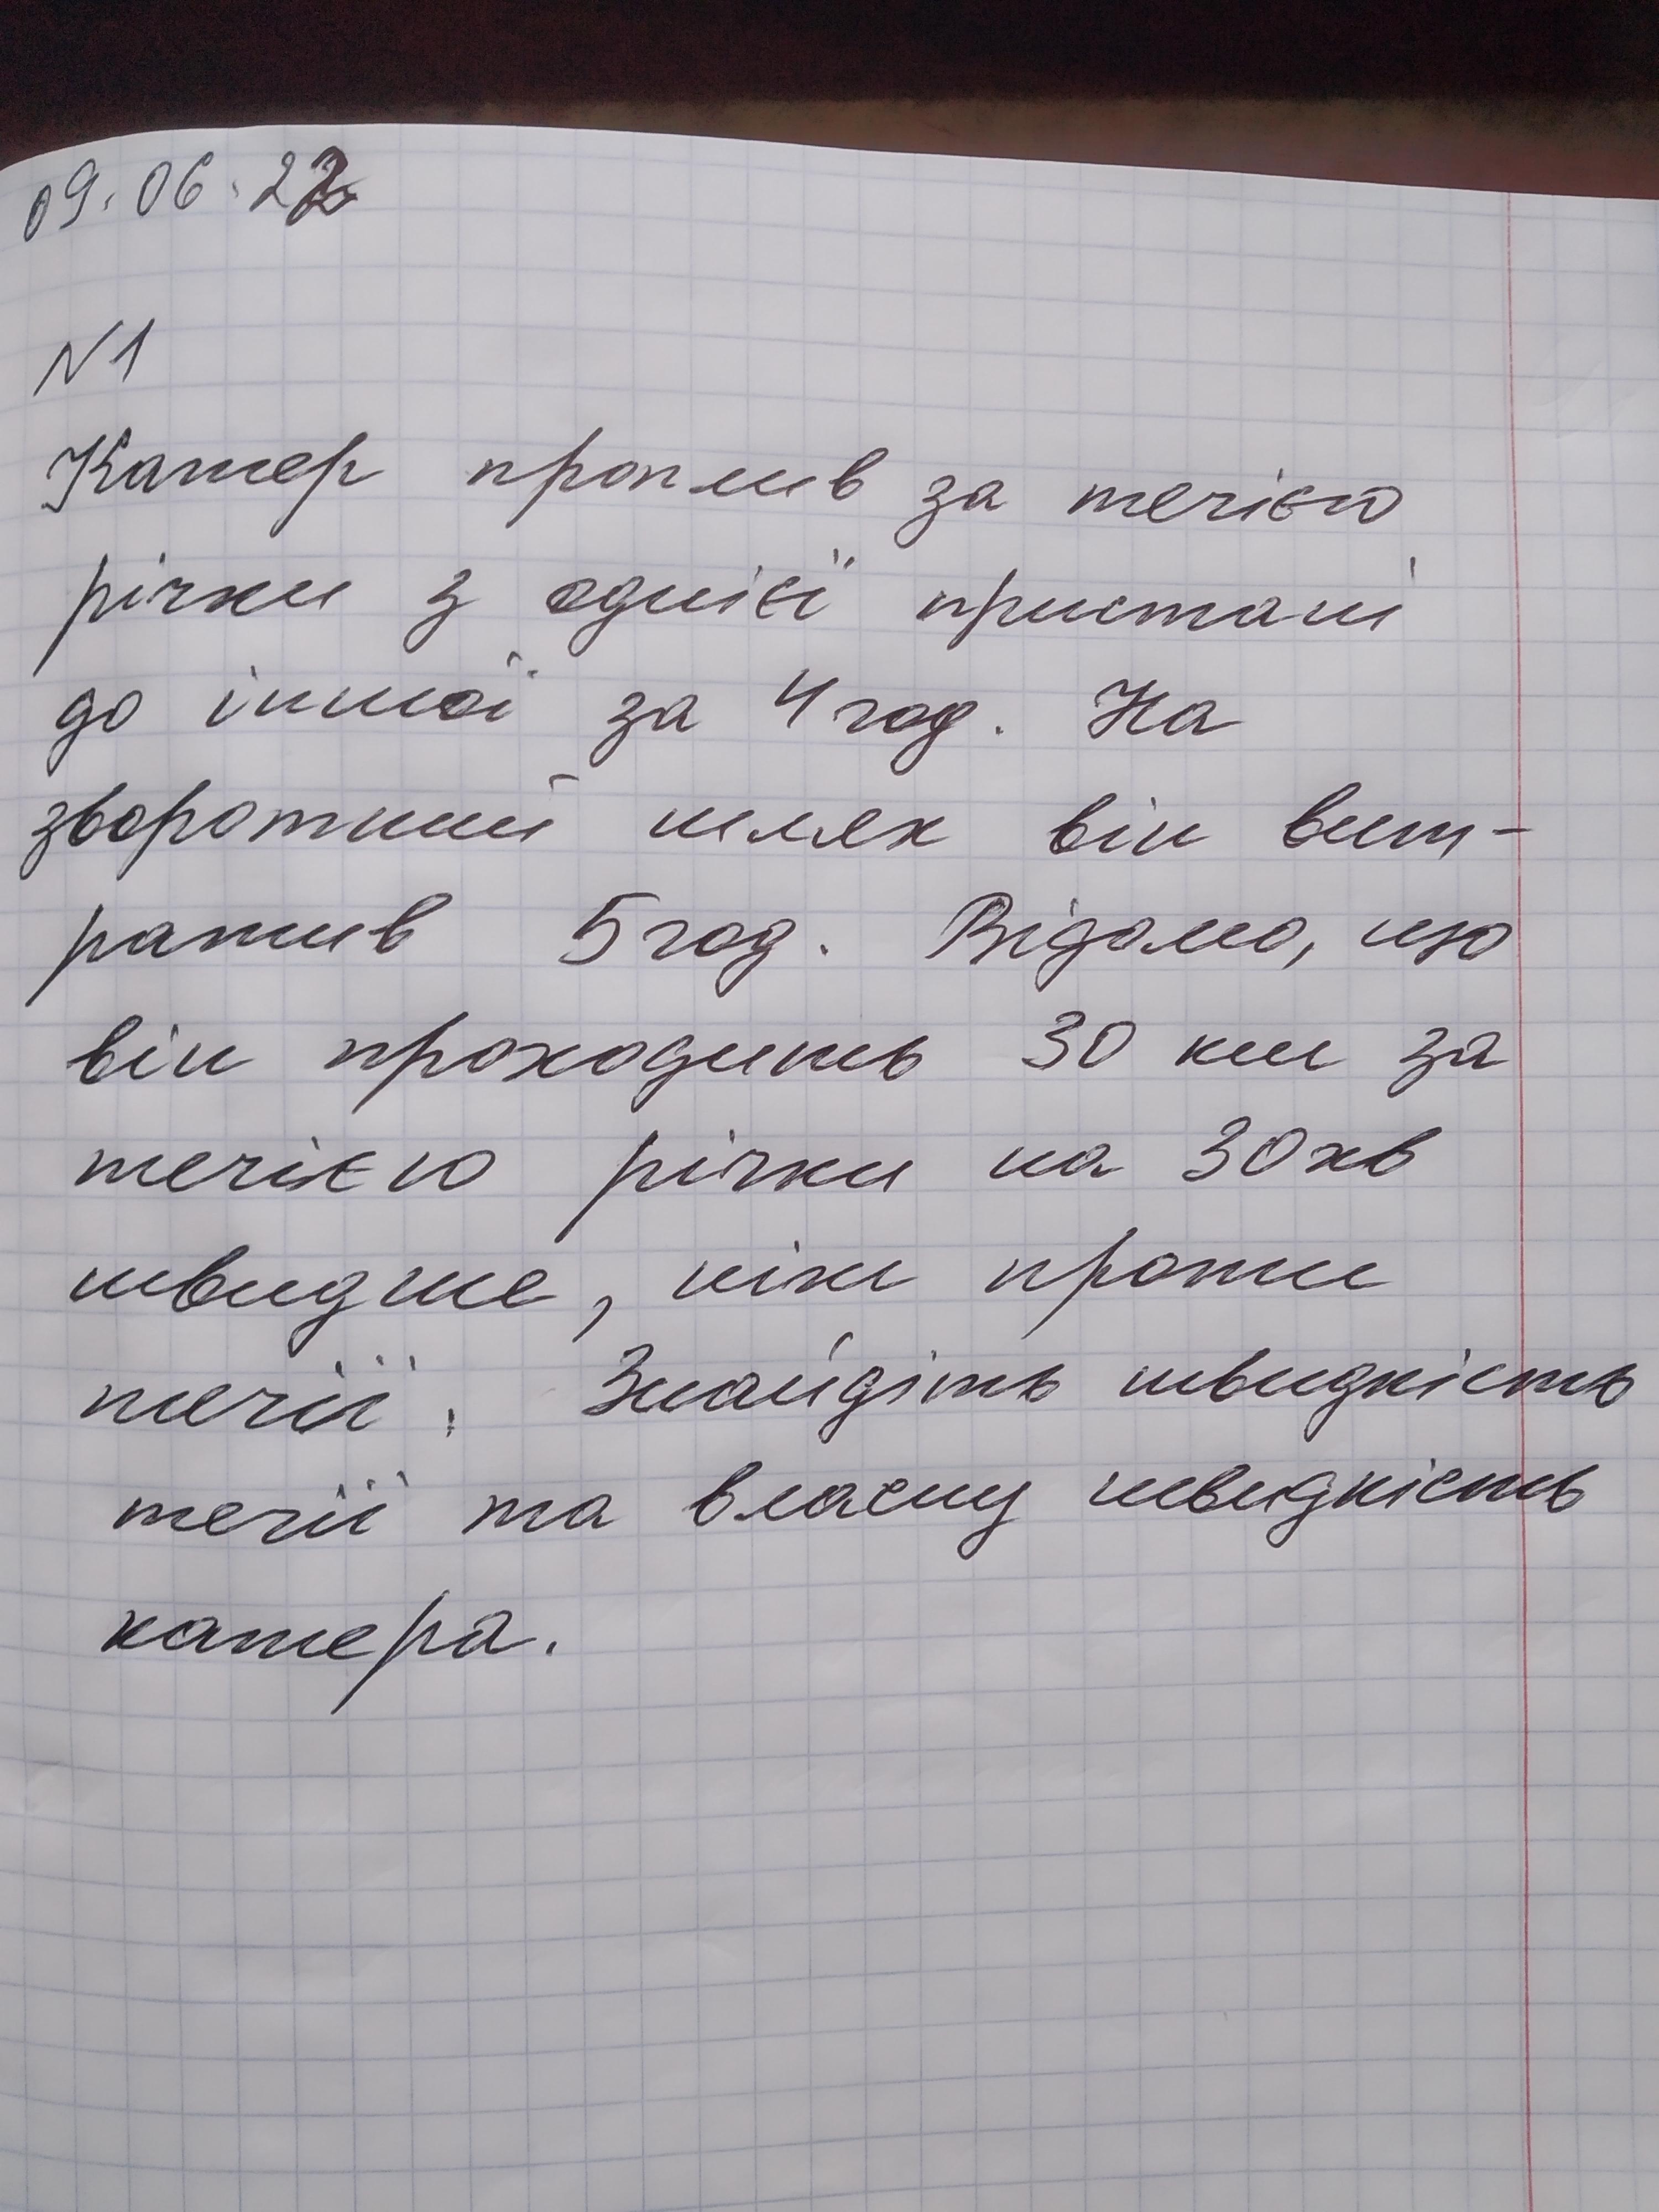 09.06.22
N1
Катер проплив за течією
річки з однієї пристані
до іншої за 4 год. На
зворотний шлях він вит-
ратив 5 год. Відомо, що
він проходить 30 км за
течією річки на 30 хв
швидше, ніж проти
течії. Знайдіть швидкість
течії та власну швидкість
катера.